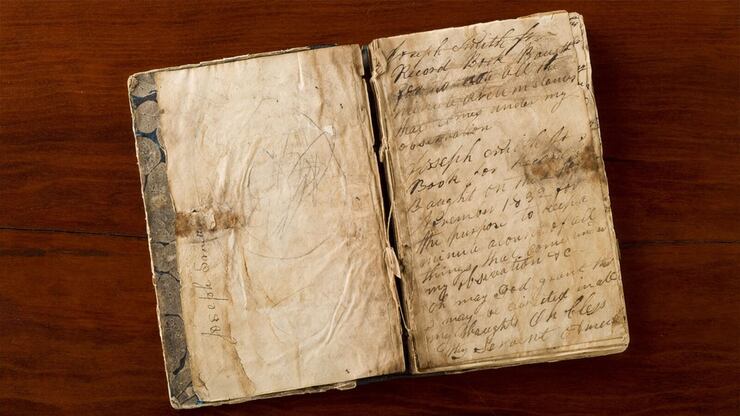 Joseph
Joseph Smith Jr
Record Book Baught
for to note all the
minute circumstances
that comes under my
observation
Joseph Smith Jr
Book for Record
Baught on the
November 1832 for
the purpose to keep a
minute acount of all
things that come under
my obseravation &c
oh may God grant that
I may be directed in all
my thaughts Oh bless
thy Servent Amen